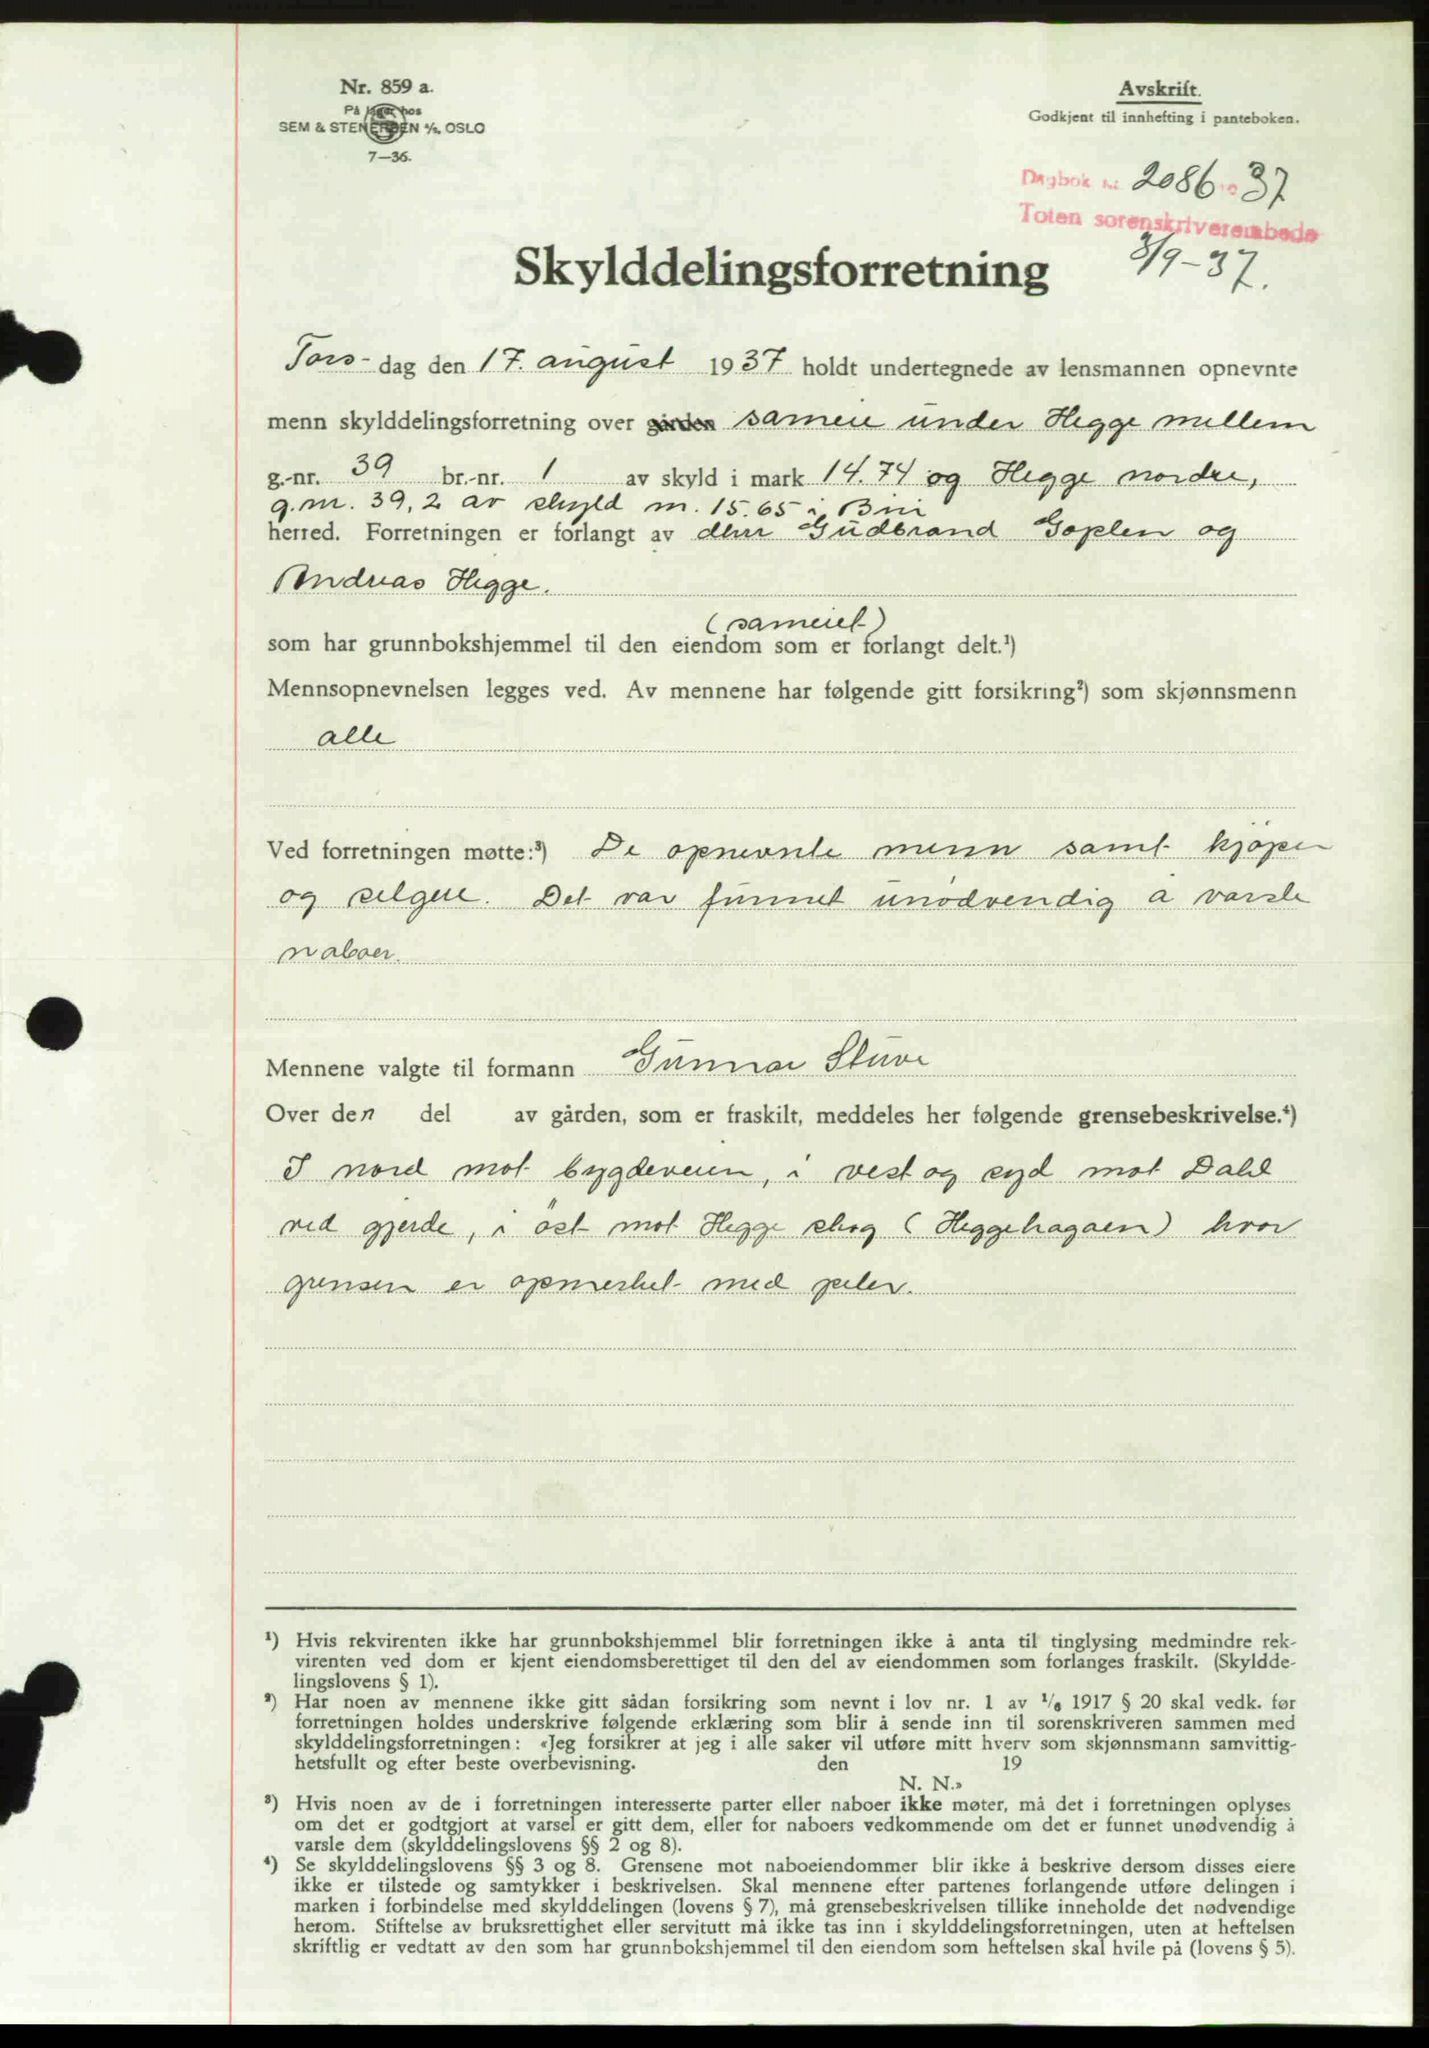 Nr. 859 a.
På lager hos
SEM & STENERSEN A/S, OSLO
7—36.
Avskrift.
Godkjent til innhefting i panteboken.
Dagbok nr. 2086 19 37
Toten sorenskriverembede
3/9-37.
Skylddelingsforretning
Tors- dag den 17. august 1937 holdt undertegnede av lensmannen opnevnte
menn skylddelingsforretning over gården sameie under Hegge mellem
g.-nr. 39 br.-nr. 1 av skyld i mark 14.74 og Hegge nordre,
g.nr. 39,2 av skyld m. 15.65 i Biri
herred. Forretningen er forlangt av dhrr Gudbrand Goplen og
Andreas Hegge.
(sameiet)
som har grunnbokshjemmel til den eiendom som er forlangt delt.¹)
Mennsopnevnelsen legges ved. Av mennene har følgende gitt forsikring²) som skjønnsmenn
alle
Ved forretningen møtte:³) De opnevnte menn samt kjøper
og selgere. Det var funnet unødvendig å varsle
naboer.
Mennene valgte til formann Gunnar Stuve
Over den del av gården, som er fraskilt, meddeles her følgende grensebeskrivelse.⁴)
I nord mot bygdeveien, i vest og syd mot Dahl
ved gjerde, i öst mot Hegge skog (Heggehagaen) hvor
grensen er opmerket med peler.
¹) Hvis rekvirenten ikke har grunnbokshjemmel blir forretningen ikke å anta til tinglysing medmindre rek-
virenten ved dom er kjent eiendomsberettiget til den del av eiendommen som forlanges fraskilt. (Skyldde-
lingslovens § 1).
²) Har noen av mennene ikke gitt sådan forsikring som nevnt i lov nr. 1 av ¹/₆ 1917 § 20 skal vedk. før
forretningen holdes underskrive følgende erklæring som blir å sende inn til sorenskriveren sammen med
skylddelingsforretningen: «Jeg forsikrer at jeg i alle saker vil utføre mitt hverv som skjønnsmann samvittig-
hetsfullt og efter beste overbevisning. den 19
N. N.»
³) Hvis noen av de i forretningen interesserte parter eller naboer ikke møter, må det i forretningen oplyses
om det er godtgjort at varsel er gitt dem, eller for naboers vedkommende om det er funnet unødvendig å
varsle dem (skylddelingslovens §§ 2 og 8).
⁴) Se skylddelingslovens §§ 3 og 8. Grensene mot naboeiendommer blir ikke å beskrive dersom disses eiere
ikke er tilstede og samtykker i beskrivelsen. Skal mennene efter partenes forlangende utføre delingen i
marken i forbindelse med skylddelingen (lovens § 7), må grensebeskrivelsen tillike inneholde det nødvendige
herom. Stiftelse av bruksrettighet eller servitutt må ikke tas inn i skylddelingsforretningen, uten at heftelsen
skriftlig er vedtatt av den som har grunnbokshjemmel til den eiendom som heftelsen skal hvile på (lovens § 5).